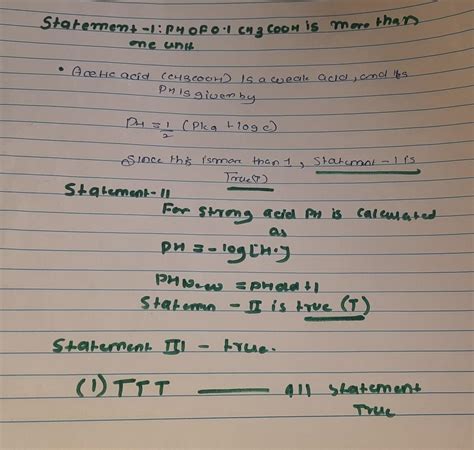 Statement-1: PH OF 0.1 CH3COOH is more than
one unit
• Acetic acid (CH3COOH) is a weak acid, and its
PH is given by
PH = 1/2 (PKa + log c)
Since this is more than 1, Statement-1 is
True(T)
Statement-II
For strong acid PH is calculated
as
PH = -log[H+]
PHNew = PHold+1
Statemen - II is true (T)
Statement III - true.
(1) TTT —— all statement
True